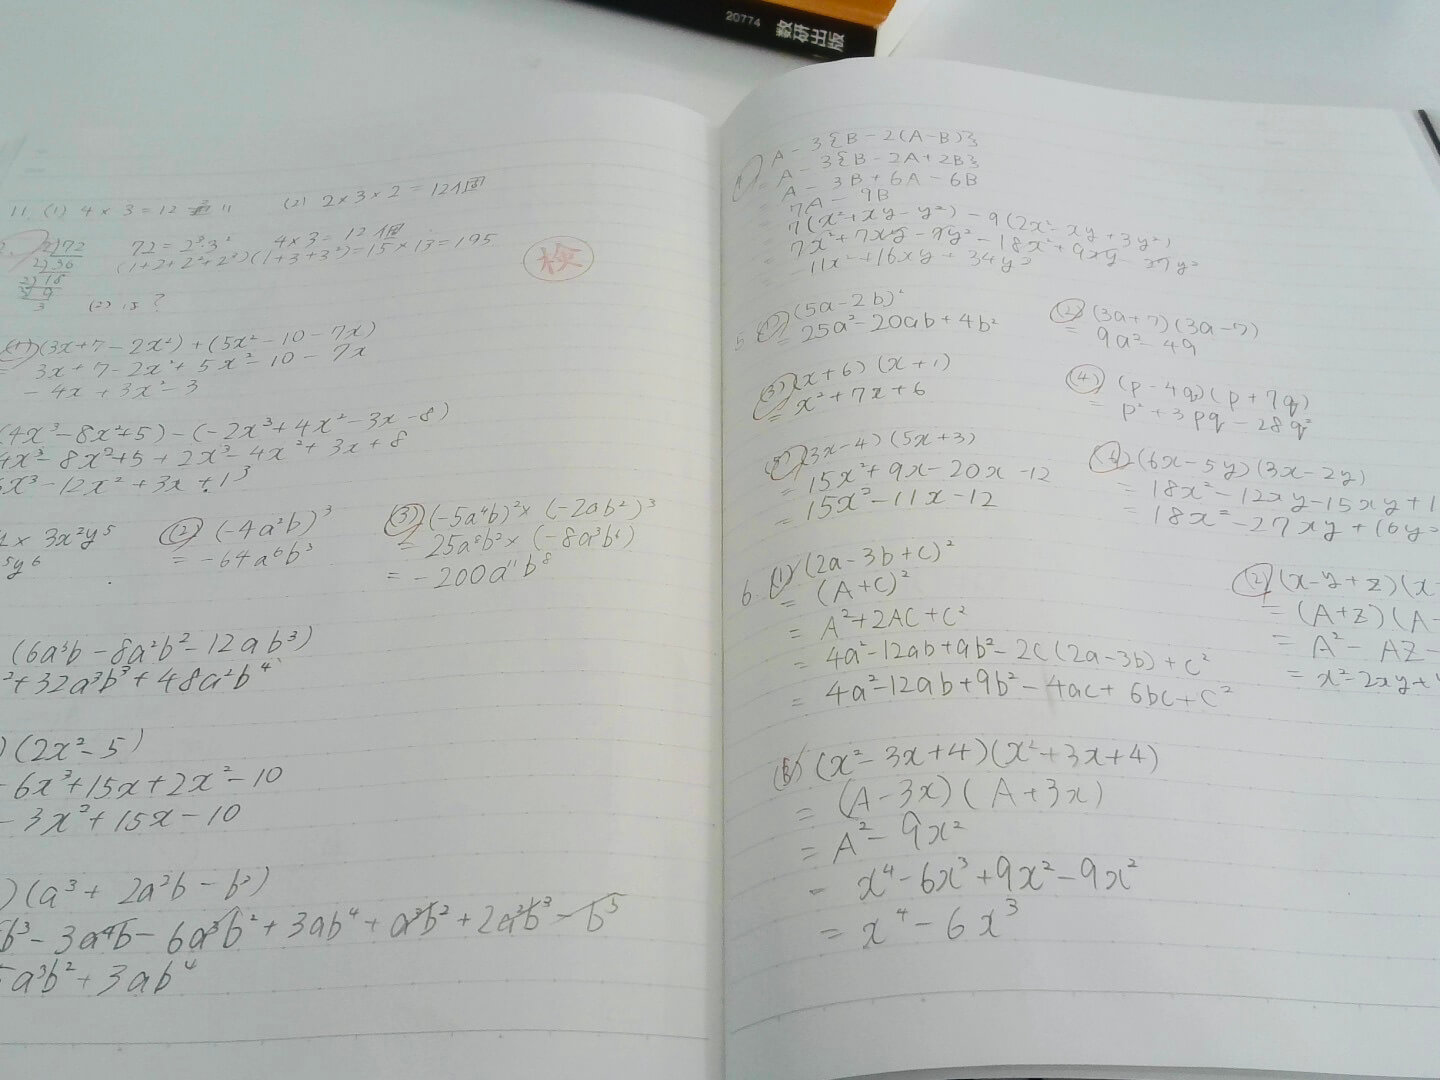 20774 数研出版
11. (1) 4×3=12
(2) 2×3×2=12個
2)72
2)36
2)18
3)9
3
72=2³·3² 4×3=12個
(1+2+2²+2³)(1+3+3²)=15×13=195
検
(2) 15?
(1) (3x+7-2x²)+(5x²-10-7x)
= 3x+7-2x²+5x²-10-7x
-4x+3x²-3
(4x³-8x²+5)-(-2x³+4x²-3x-8)
4x³-8x²+5+2x³-4x²+3x+8
6x³-12x²+3x+13
× 3x²y⁵
⁵y⁶
(2) (-4a²b)³
= -64a⁶b³
(3) (-5a⁴b)²×(-2ab²)³
= 25a⁸b²×(-8a³b⁶)
= -200a¹¹b⁸
(6a³b-8a²b²-12ab³)
²+32a³b³+48a²b⁴
)(2x²-5)
-6x³+15x+2x²-10
-3x²+15x-10
)(a³+2a²b-b³)
b³-3a⁴b-6a³b²+3ab⁴+a³b²+2a²b³-b⁵
5a³b²+3ab⁴
(1) A-3{B-2(A-B)}
= A-3{B-2A+2B}
= A-3B+6A-6B
7A-9B
7(x²+xy-y²)-9(2x²-xy+3y²)
7x²+7xy-9y²-18x²+9xy-27y²
11x²+16xy+34y²
5 (1) (5a-2b)²
= 25a²-20ab+4b²
(2) (3a+7)(3a-7)
= 9a²-49
(3) (x+6)(x+1)
= x²+7x+6
(4) (p-4q)(p+7q)
= p²+3pq-28q²
(5) (3x-4)(5x+3)
= 15x²+9x-20x-12
= 15x²-11x-12
(6) (6x-5y)(3x-2y)
= 18x²-12xy-15xy+1
= 18x²-27xy+16y²
6 (1) (2a-3b+c)²
= (A+C)²
= A²+2AC+C²
= 4a²-12ab+9b²-2c(2a-3b)+c²
= 4a²-12ab+9b²-4ac+6bc+c²
(2) (x-y+z)(x-
= (A+z)(A-
= A²-Az-
= x²-2xy+
(3) (x²-3x+4)(x²+3x+4)
= (A-3x)(A+3x)
= A²-9x²
= x⁴-6x³+9x²-9x²
= x⁴-6x³